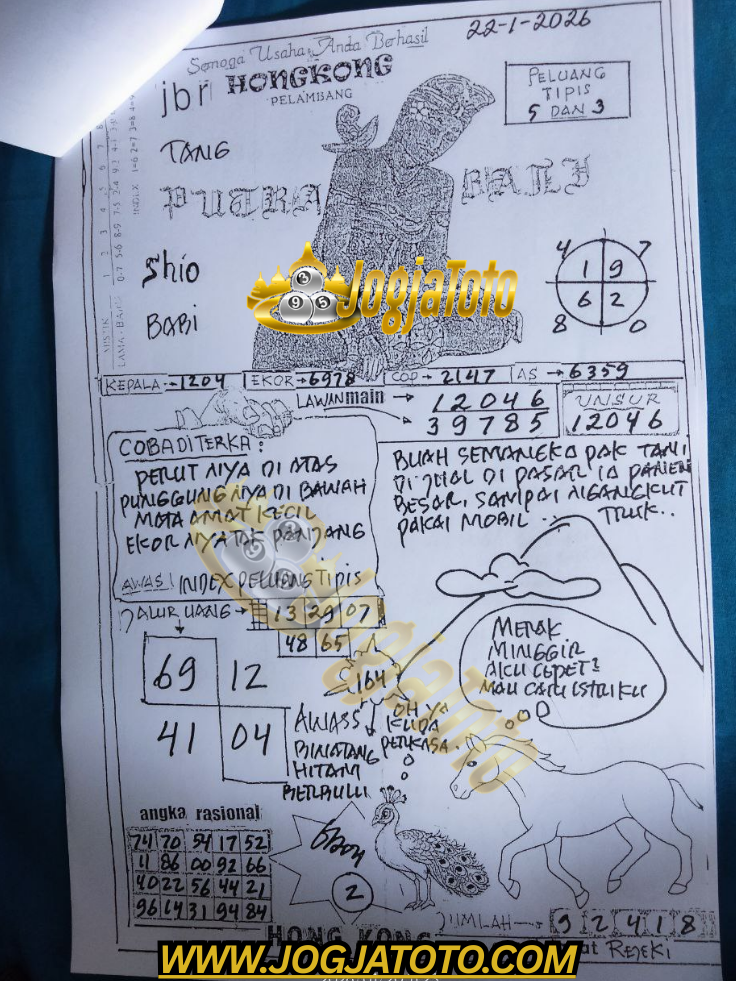 22-1-2026
Semoga Usaha Anda Berhasil
jbr HONGKONG
PELAMBANG
PELUANG
TIPIS
5 DAN 3
TANG
PUTRA BALI
Shio
BABI
4 7
1 9
6 2
8 0
JogjaToto
KEPALA → 1204 EKOR → 6978 COP → 2147 AS → 6359
LAWAN main → 12046
→ 39785
UNSUR
12046
COBA DITERKA :
PERUT NYA DI ATAS
PUNGGUNG NYA DI BAWAH
MATA AMAT KECIL
EKOR NYA TAK PANJANG
AWAS! INDEX PELUANG TIPIS
BUAH SEMANGKA PAK TANI
DI JUAL DI PASAR IA PANEN
BESAR, SAMPAI NGANGKUT
PAKAI MOBIL ... TRUK..
JALUR UANG → 13 29 07
48 65
164
69 12
41 04
MERAK
MINGGIR
AKU CEPET2
MAU CARI ISTRIKU
OH YA
KUDA
PERKASA.
AWASS
BINATANG
HITAM
BERBULU
angka rasional
74 70 54 17 52
11 86 00 92 66
40 22 56 44 21
96 14 31 94 84
2
JUMLAH → 9 2 4 1 8
HONG KONG
REJEKI
WWW.JOGJATOTO.COM